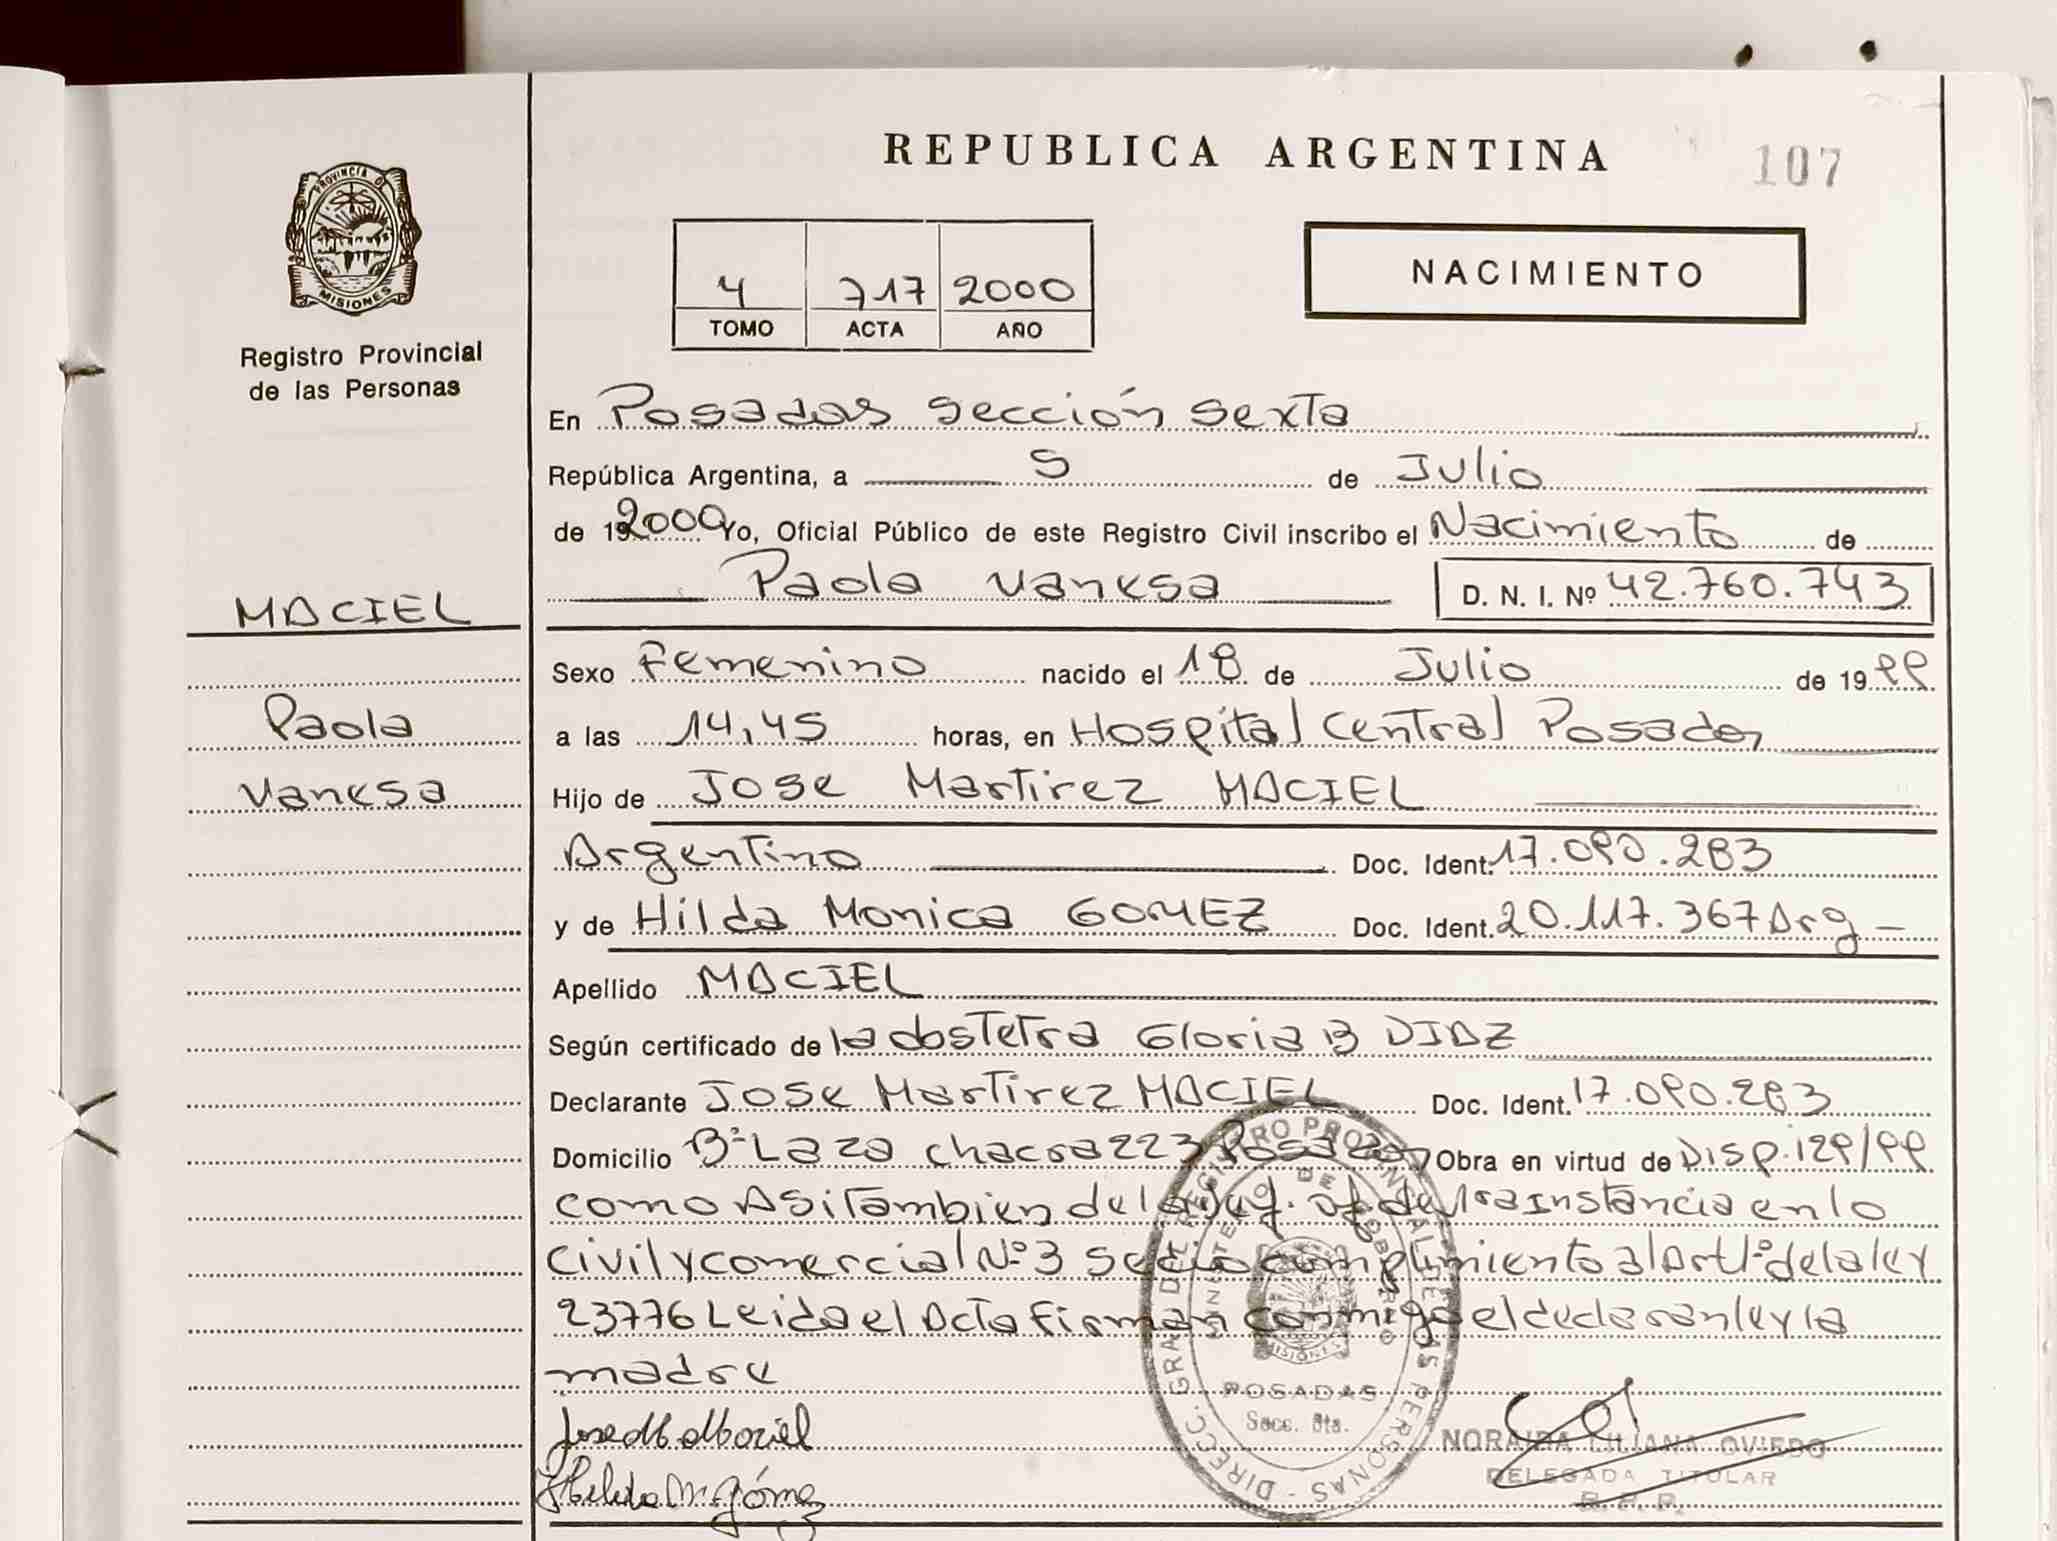 REPUBLICA ARGENTINA
107
PROVINCIA D
MISIONES
Registro Provincial
de las Personas
4 717 2000
TOMO ACTA AÑO
NACIMIENTO
En Posadas sección sexta
República Argentina, a 5 de Julio
de 192000 Yo, Oficial Público de este Registro Civil inscribo el Nacimiento de
Paola vanesa D. N. I. Nº 42.760.743
MACIEL
Paola
vanesa
Sexo Femenino nacido el 18 de Julio de 1999
a las 14,45 horas, en Hospital Central Posadas
Hijo de Jose Martirez MACIEL
Argentino Doc. Ident. 17.090.283
y de Hilda Monica GOMEZ Doc. Ident. 20.117.367 Arg
Apellido MACIEL
Según certificado de la obstetra Gloria B DIAZ
Declarante Jose Martirez MACIEL Doc. Ident. 17.090.283
Domicilio Bº Laza chacra 223 Posadas Obra en virtud de Disp. 129/99
como Asi Tambien de la 1ra Instancia en lo
civil y comercial Nº 3 cumplimiento al Art 1º de la ley
23776 Leida el Acta Firman conmigo el declarante y la
madre
Jose M Maciel
Hilda M. Gómez
DIRECC. GRAL DEL REGISTRO PROVINCIAL DE LAS PERSONAS
MINISTERIO DE GOBIERNO
MISIONES
POSADAS
Secc. 6ta.
NORAIDA LILIANA OVIEDO
DELEGADA TITULAR
R. P. P.